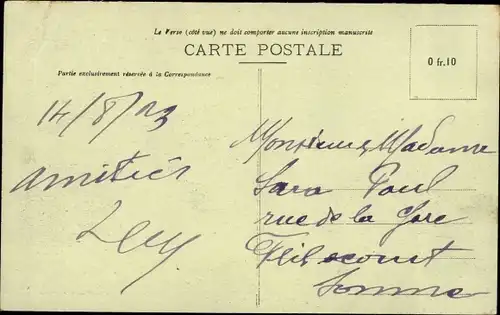 Le Verso (côté vue) ne doit comporter aucune inscription manuscrite
CARTE POSTALE
0 fr.10
Partie exclusivement réservée à la Correspondance
14/8/03
amitiés
Monsieur Madame
Sara Paul
rue de la Gare
Flixecourt
Somme